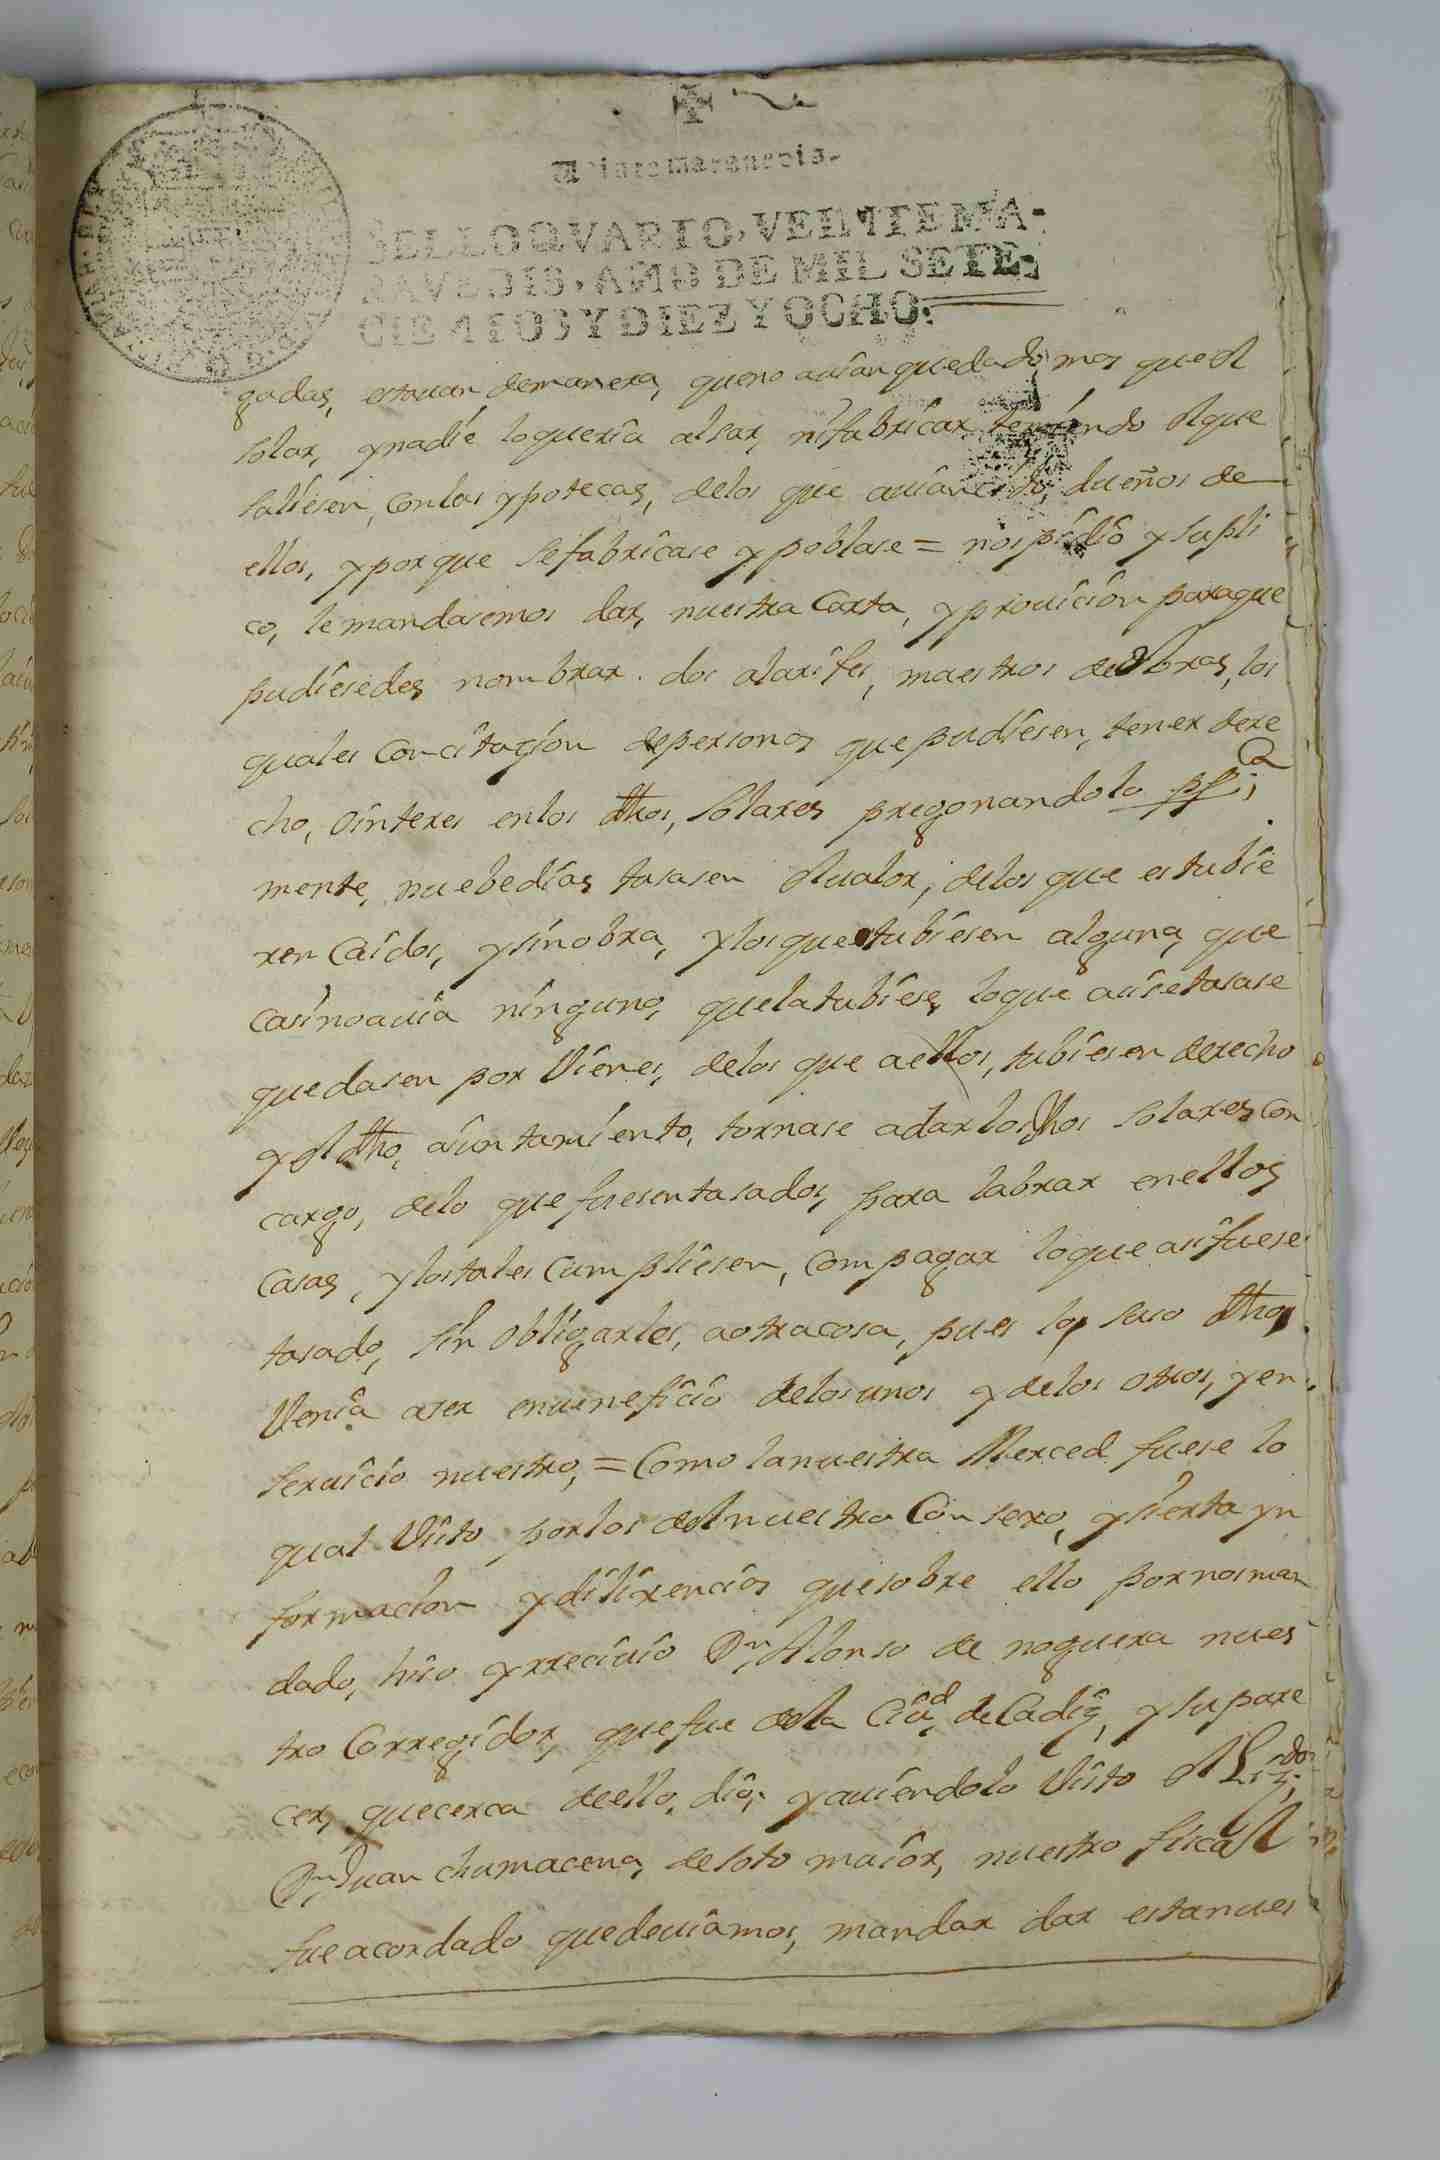 Veinte maravedis.
SELLO QVARTO, VEINTE MA-
RAVEDIS, AÑO DE MIL SETE-
CIENTOS Y DIEZ Y OCHO.
gadas, estauan demanera, queno auian quedado mas que el
solar, ynadíe loqueria alsar, nifabricar temiendo elque
saliesen, conlas ypotecas, delos que auian sido, dueños de
ellos, yporque sefabricase ypoblase = nos pidio ysupli
co, lemandasemos dar, nuestra Carta, yprouicion paraque
pudiesedes nombrar. dos alarifes, maestros deobras, los
quales Concitaçion depersonas quepudiesen, tener dere
cho, ointeres enlos dhos, solares pregonandolo ppca
mente, nuebedias tasasen elualor, delos que estubie
ren Caidos, ysinobra, ylosqueestubiesen alguna, que
casinoauia ninguno, quelatubiese, loque asisetasase
quedasen por Vienes, delos que aellos, tubiesen derecho
yeldho, aiuntamiento, tornase adarlosdhos solares con
cargo, delo que fuesentasados, para labrar enellos
Casas, ylostales cumpliesen, compagar loque asifuese
tasado, sin obligarles, aotracosa, pues lo suso dho,
Venia aser enueneficio delosunos ydelos otros, yen
seruicio nuestro, = Como lanuestra Merced fuese lo
qual Visto porlos delnuestro Consexo, ysierta yn
formacion ydilixencias quesobre ello pornosman
dado, hiso yrreciuio Dn. Alonso de noguera nues
tro Corregidor, quefue dela Ciud. deCadiz, ysupare
cer, quecerca deello, dio; yauiendolo Visto el Lizdo.
Dn. Juan chumacena, desoto maior, nuestro fiscal
fueacordado quedeuiamos, mandar dar estanues